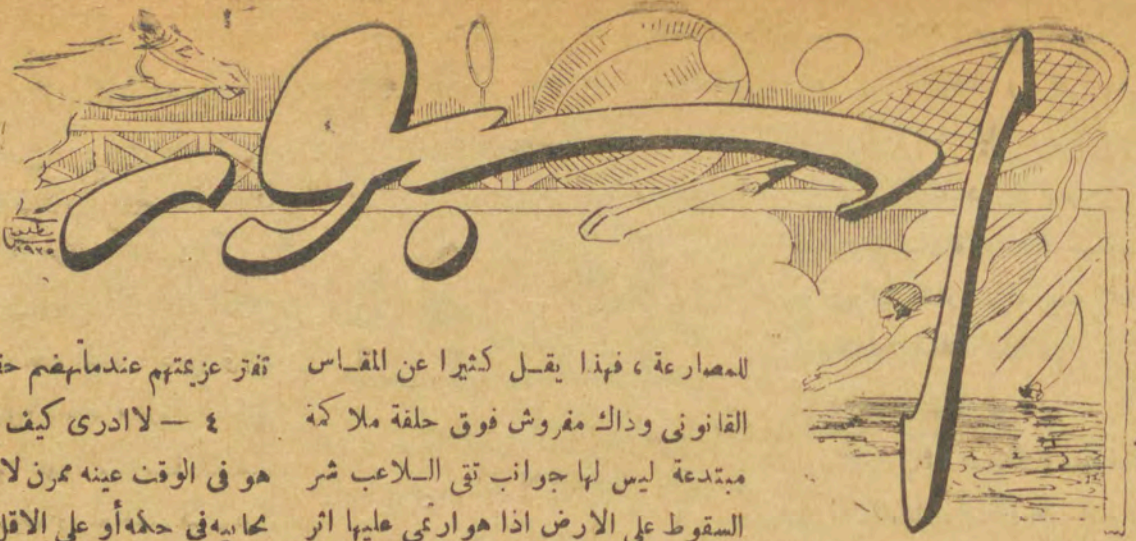 اسبور
للمصارعة ، فهذا يقل كثيرا عن المقاس
القانونى وذاك مفروش فوق حلقة ملاكمة
مبتدعة ليس لها جوانب تقى اللاعب شر
السقوط على الارض اذا هو ارتمى عليها اثر
تفتر عزيمتهم عندما يهضم
٤ — لا ادرى كيف
هو فى الوقت عينه ممرن
يحابيه فى حكمه أو على الاقل